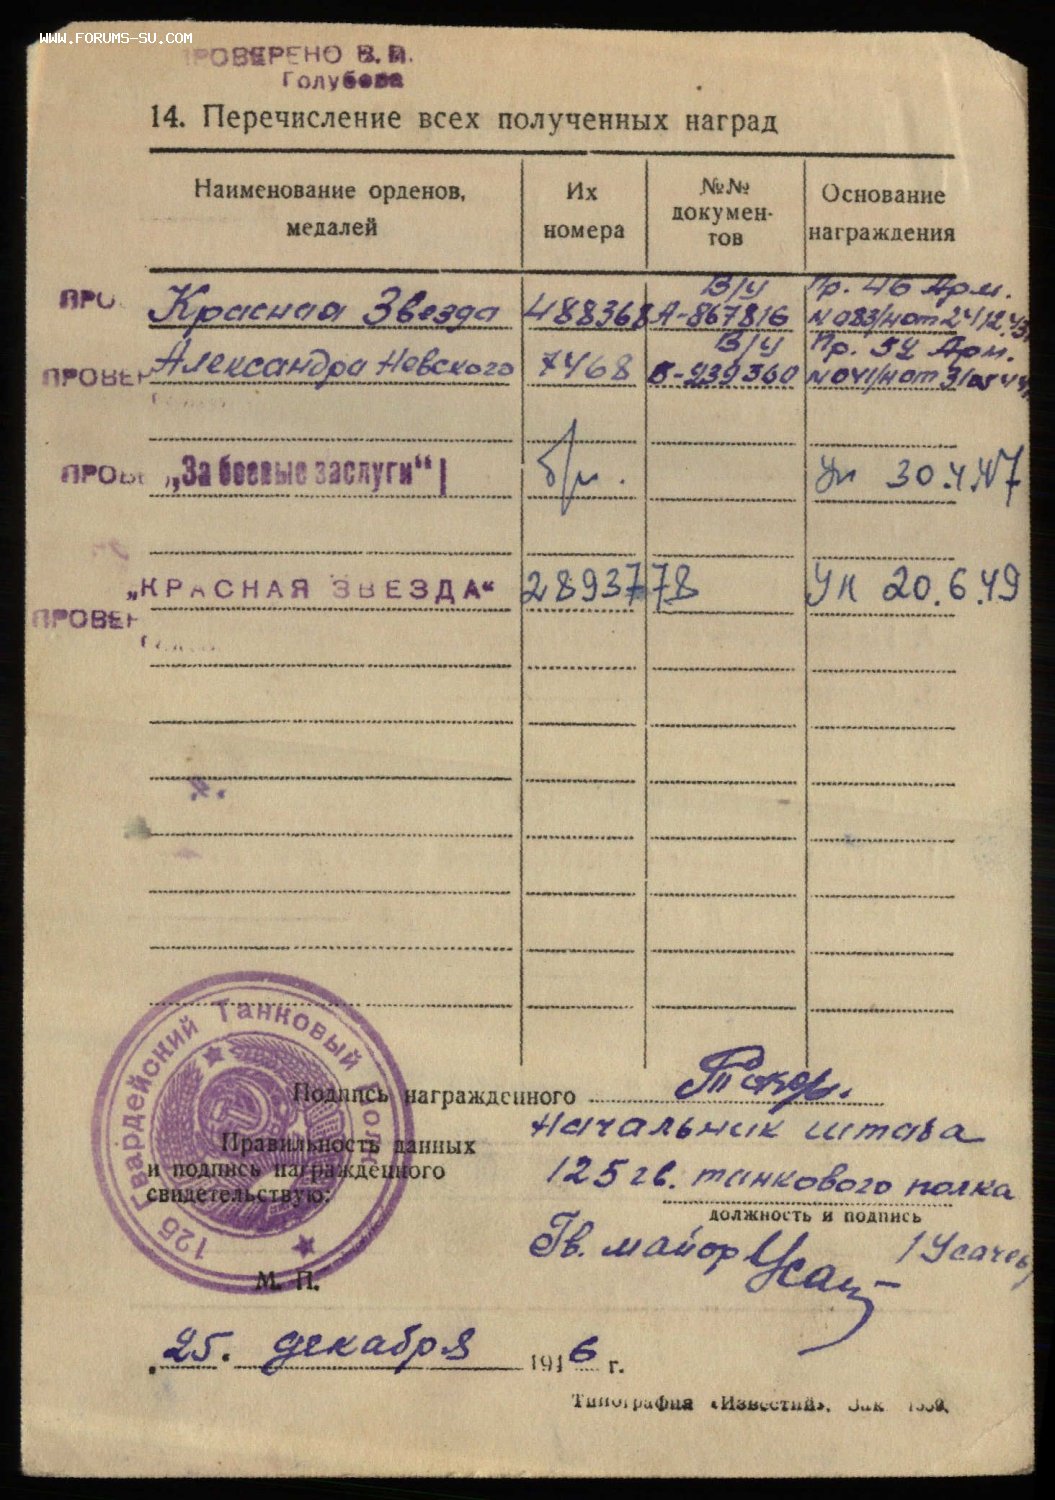 WWW.FORUMS-SU.COM
ПРОВЕРЕНО В. И.
Голубева
14. Перечисление всех полученных наград
Наименование орденов, медалей
Их номера
№№ докумен-тов
Основание награждения
ПРО
Красная Звезда 488368 В/У А-867816 Пр. 46 Арм. N 083/н от 24.12.43
ПРОВЕР
Александра Невского 7468 В/У Б-239360 Пр. 52 Арм. N 041/н от 31.05.44
ПРОВЕ „За боевые заслуги“ б/н. Ук 30.4.47
„КРАСНАЯ ЗВЕЗДА“ 2893778 Ук 20.6.49
ПРОВЕР
125 Гвардейский Танковый Полк
Подпись награжденного
Правильность данных
и подпись награжденного
свидетельствую:
Начальник штаба
125 гв. танкового полка
должность и подпись
Гв. майор /Усачев/
М. П.
25. декабря 1946 г.
Типография «Известий». Зак